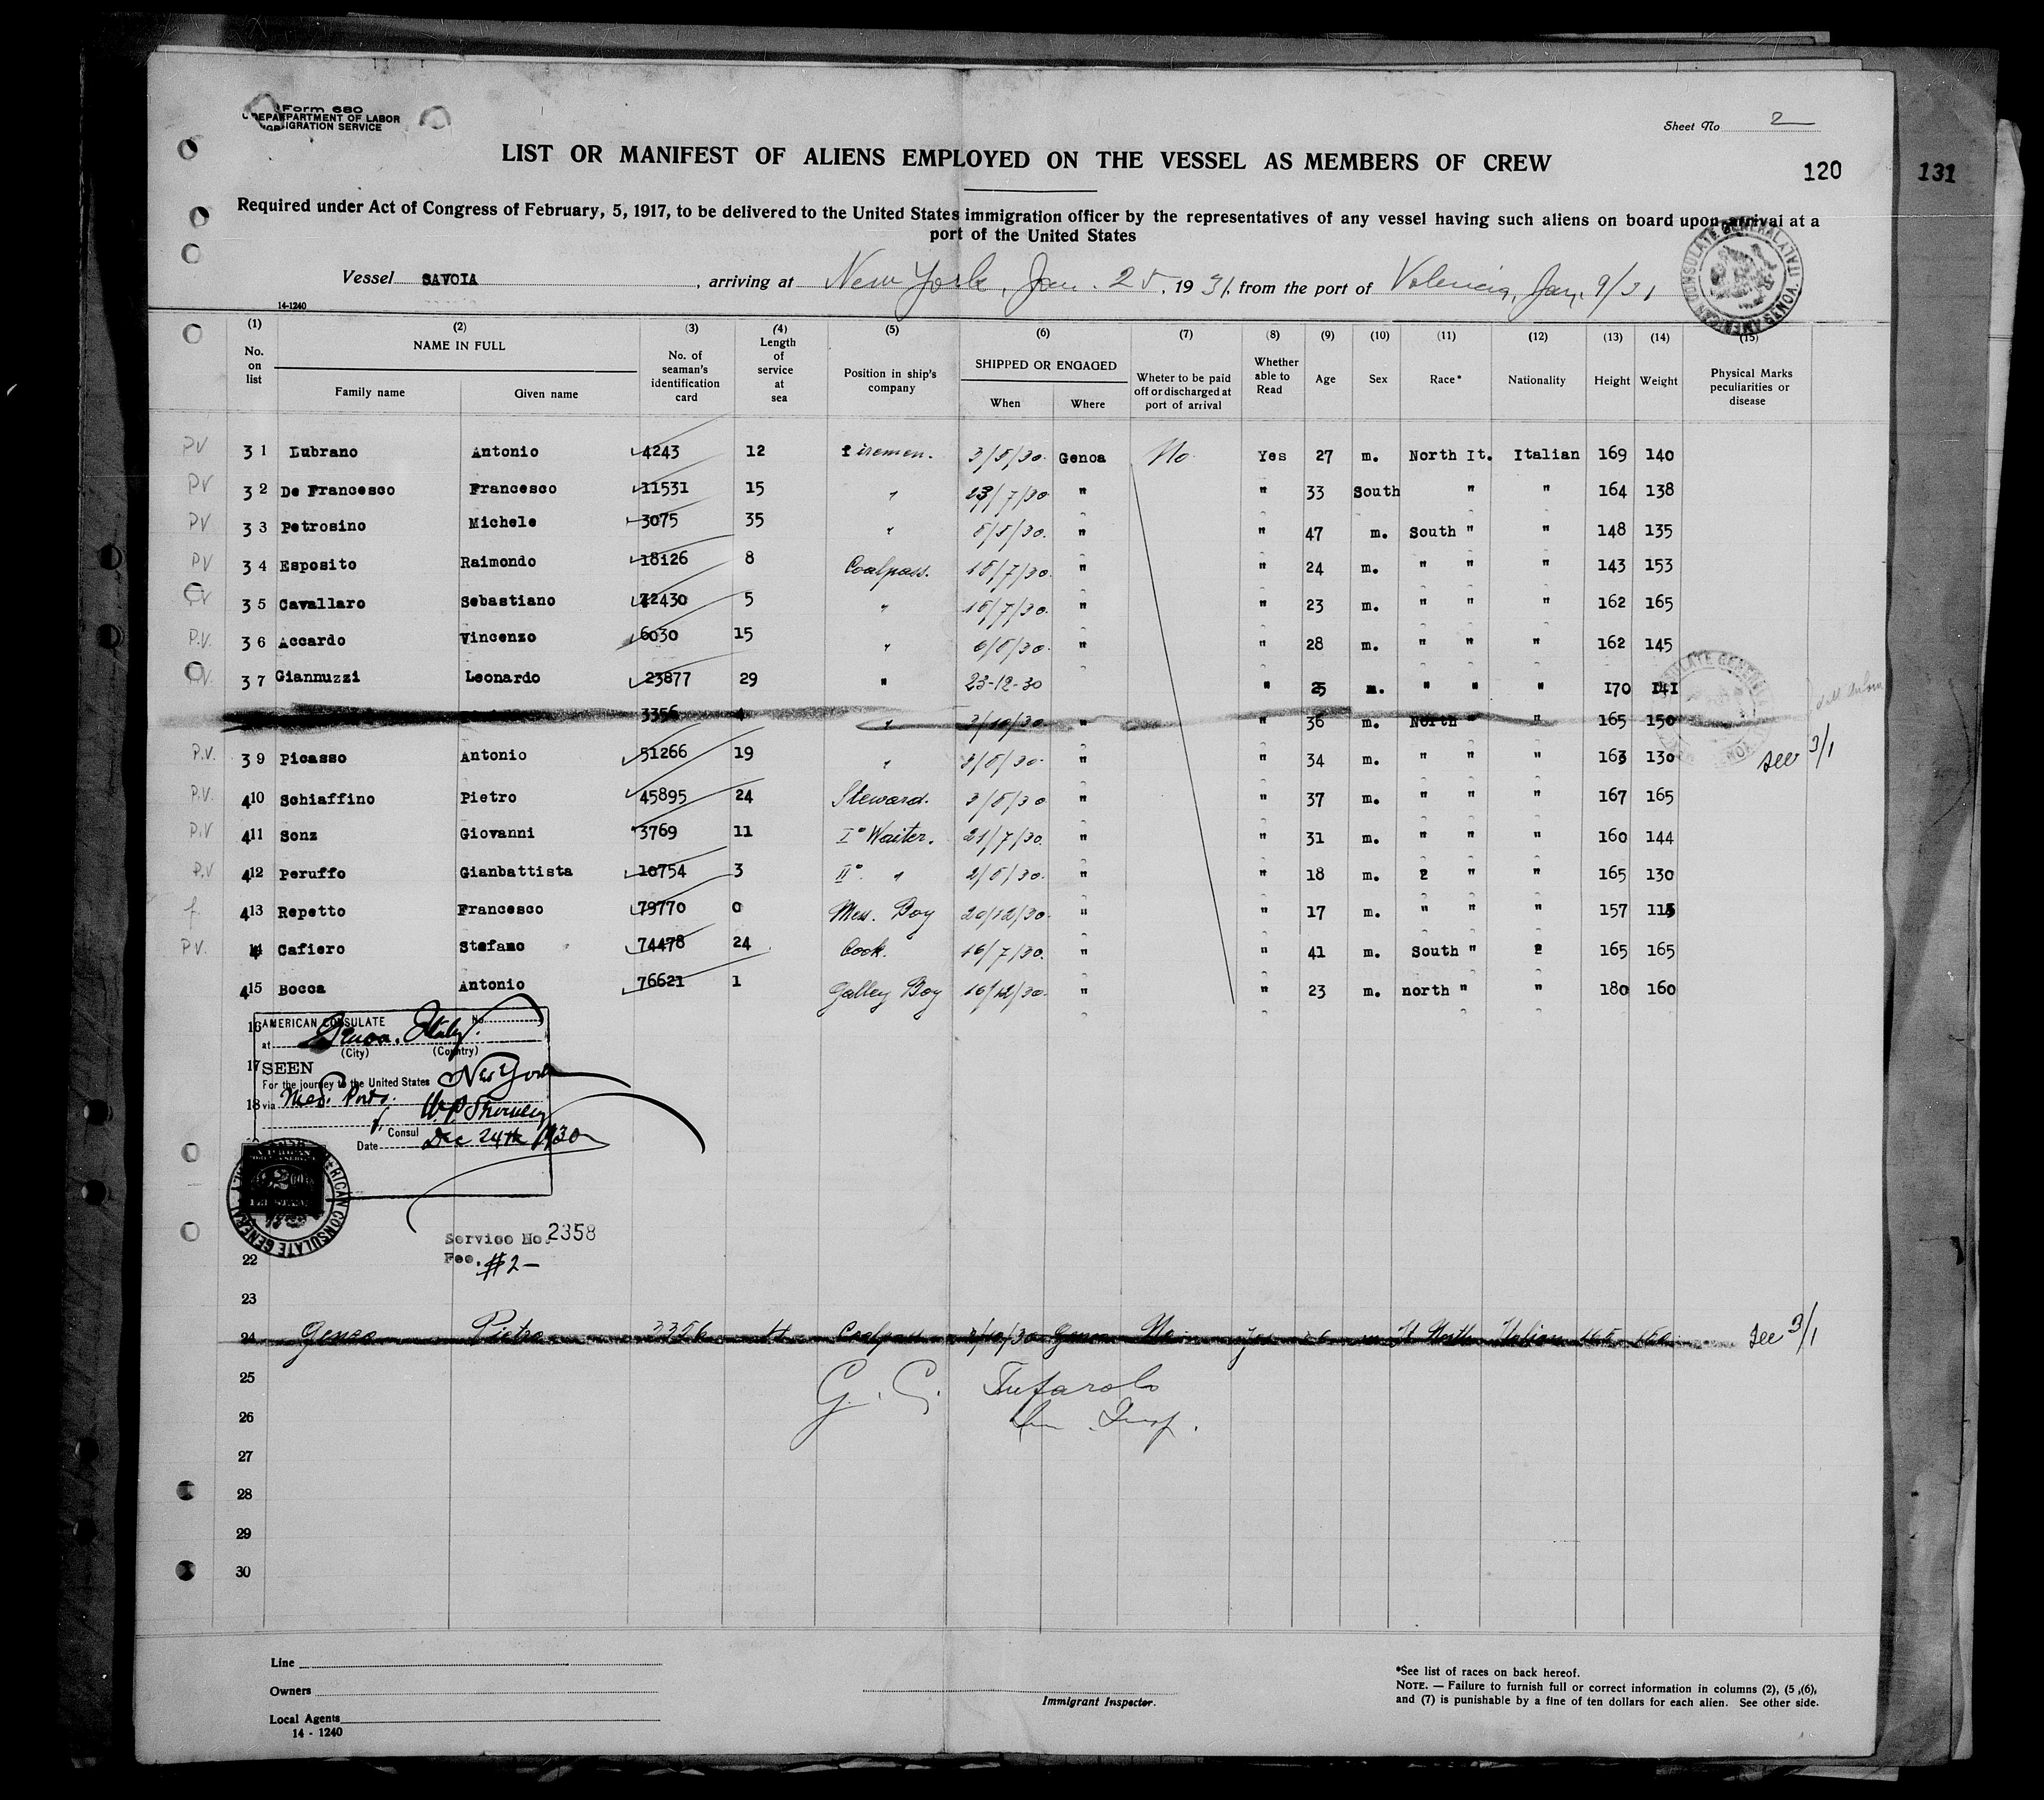 Form 680
DEPARTMENT OF LABOR
IGRATION SERVICE
Sheet No 2
LIST OR MANIFEST OF ALIENS EMPLOYED ON THE VESSEL AS MEMBERS OF CREW
120
131
Required under Act of Congress of February, 5, 1917, to be delivered to the United States immigration officer by the representatives of any vessel having such aliens on board upon arrival at a
port of the United States
Vessel SAVOIA, arriving at New York, Jan. 25, 1931, from the port of Valencia, Jan, 9/31
AMERICAN CONSULATE GENERAL GENOVA, ITALY
14-1240
(1) (2) (3) (4) (5) (6) (7) (8) (9) (10) (11) (12) (13) (14) (15)
No. on list NAME IN FULL Family name Given name No. of seaman's identification card Length of service at sea Position in ship's company SHIPPED OR ENGAGED When Where Wheter to be paid off or discharged at port of arrival Whether able to Read Age Sex Race* Nationality Height Weight Physical Marks peculiarities or disease
PV 3 1 Lubrano Antonio 4243 12 Firemen. 3/5/30 Genoa No Yes 27 m. North It. Italian 169 140
PV 3 2 De Francesco Francesco 11531 15 " 23/7/30 " " 33 South " " 164 138
PV 3 3 Petrosino Michele 3075 35 " 5/5/30. " " 47 m. South " " 148 135
PV 3 4 Esposito Raimondo 18126 8 Coalpass. 15/7/30. " " 24 m. " " " 143 153
3 5 Cavallaro Sebastiano 72430 5 " 15/7/30. " " 23 m. " " " 162 165
P.V. 3 6 Accardo Vincenzo 6030 15 " 6/5/30. " " 28 m. " " " 162 145
3 7 Giannuzzi Leonardo 23877 29 " 23-12-30 " 25 m. " " " 170 141
3356 4 " 3/10/30 " 36 m. North " " 165 150
P.V. 3 9 Picasso Antonio 51266 19 " 3/5/30. " " 34 m. " " " 163 130 see 3/1
P.V. 410 Schiaffino Pietro 45895 24 Steward. 3/5/30 " " 37 m. " " " 167 165
P.V 411 Sonz Giovanni 3769 11 I° Waiter. 21/7/30. " " 31 m. " " " 160 144
P.V 412 Peruffo Gianbattista 10754 3 II° " 2/5/30. " " 18 m. 2 " " 165 130
f. 413 Repetto Francesco 79770 0 Mess. Boy 20/12/30. " " 17 m. " " " 157 115
PV. 44 Cafiero Stefano 74478 24 Cook. 16/7/30. " " 41 m. South " 2 165 165
415 Bocca Antonio 76621 1 Galley Boy 16/12/30. " " 23 m. north " " 180 160
16 AMERICAN CONSULATE No.
at Genoa, Italy.
(City) (Country)
17 SEEN
For the journey to the United States New York
18 via Med. Ports.
Consul
Date Dec 24th 1930
AMERICAN CONSULATE GENERAL
Service No. 2358
Fee. $2-
22
23
24 Genzo Pietro 3356 4 Coalpass 3/10/30 Genoa No yes 36 m It North Italian 165 150 see 3/1
25
G. C. Tufarolo
26
Im. Insp.
27
28
29
30
Line
Owners
Local Agents
14 - 1240
Immigrant Inspector.
*See list of races on back hereof.
NOTE. — Failure to furnish full or correct information in columns (2), (5 ,(6),
and (7) is punishable by a fine of ten dollars for each alien. See other side.